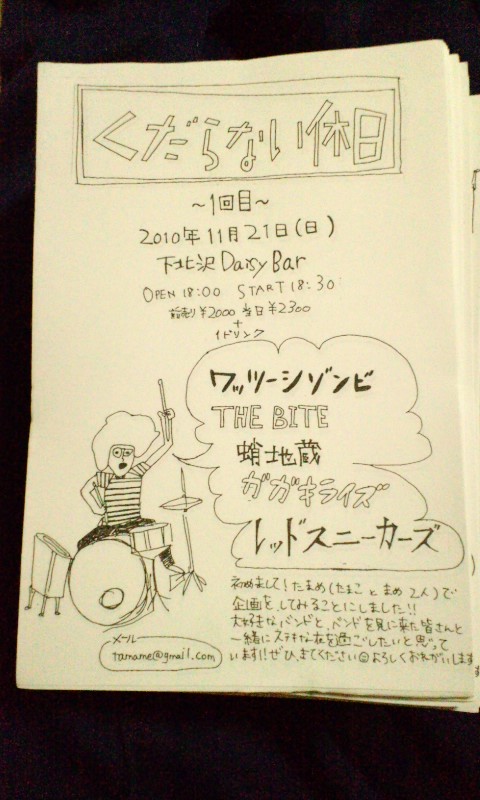 くだらない休日
～1回目～
2010年11月21日(日)
下北沢 Daisy Bar
OPEN 18:00 START 18:30
前売り¥2000 当日¥2300
+
1ドリンク
ワッツーシゾンビ
THE BITE
蛸地蔵
ガガキライズ
レッドスニーカーズ
初めまして!たまめ(たまこ と まめ 2人)で
企画をしてみることにしました!!
大好きなバンドと、バンドを見に来た皆さんと
一緒にステキな夜を過ごしたいと思って
います!ぜひきてください☺よろしくおねがいします
メール
tamame@gmail.com